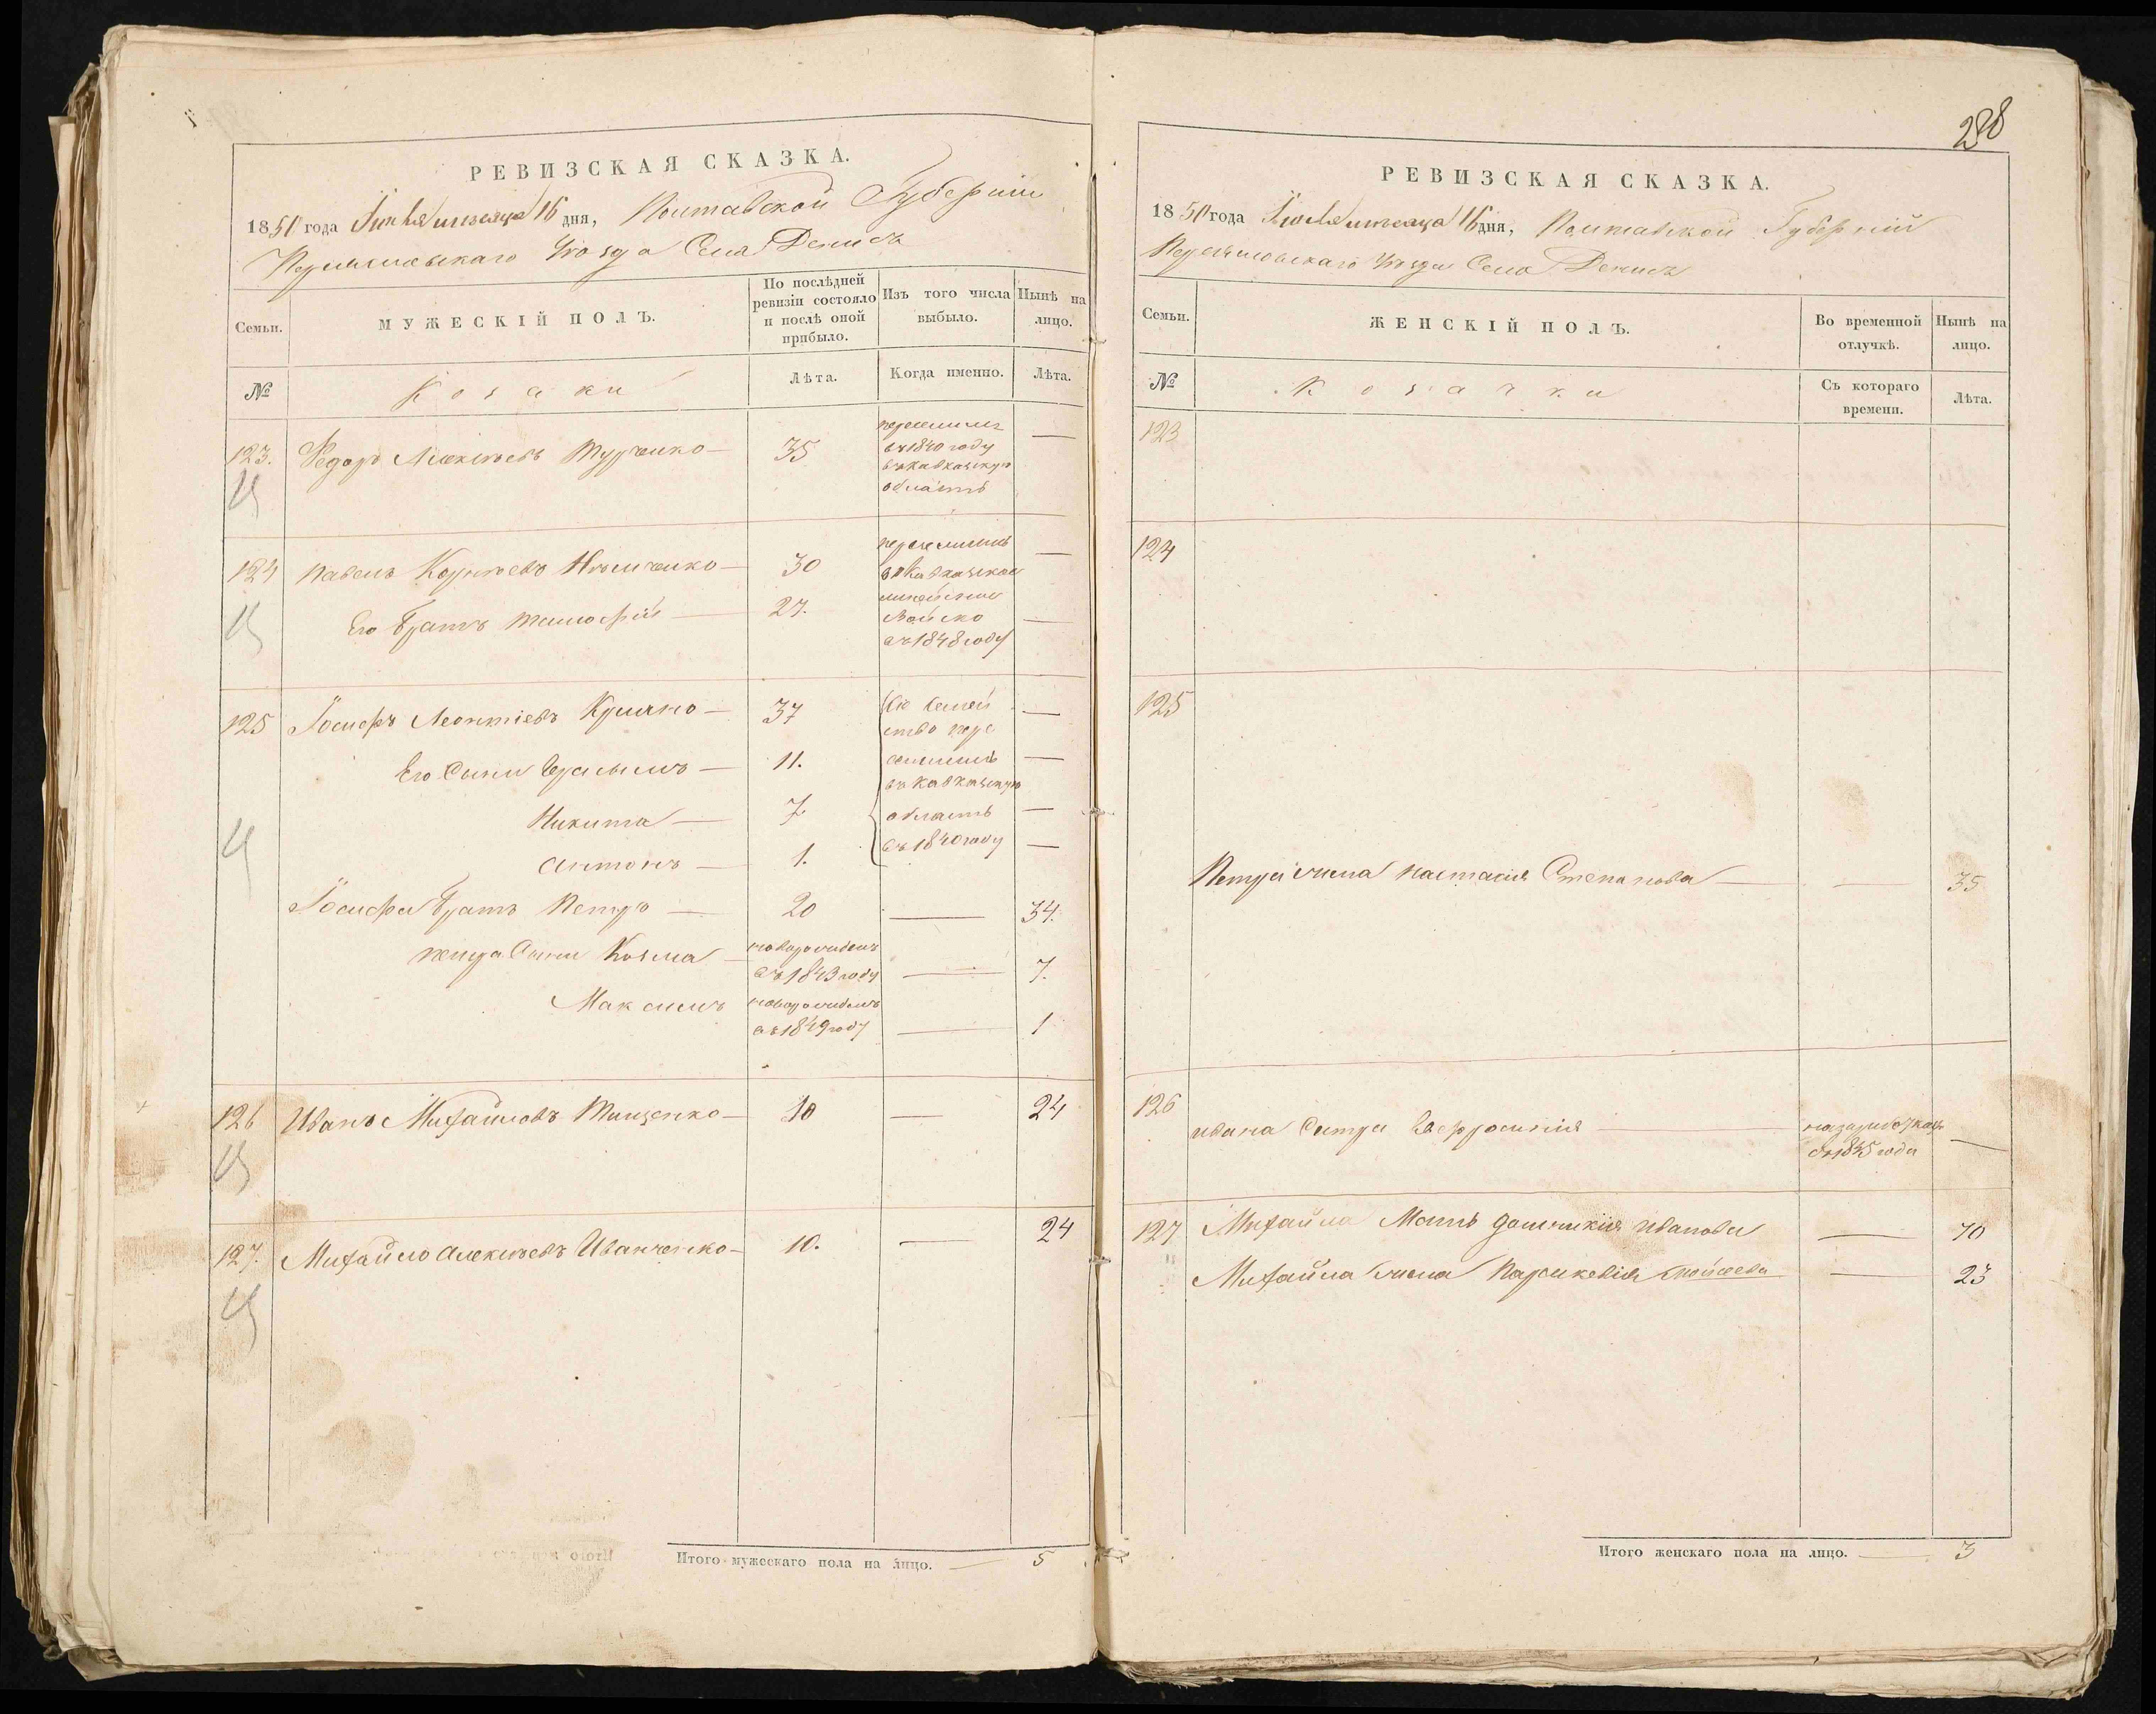 РЕВИЗСКАЯ СКАЗКА.
1850 года Іюля мѣсяца 16 дня, Полтавской Губерніи
Переяславскаго Уѣзда Села Денисъ
Семьи.
МУЖЕСКІЙ ПОЛЪ.
По послѣдней ревизіи состояло и послѣ оной прибыло.
Изъ того числа выбыло.
Нынѣ на лицо.
№
Козаки
Лѣта.
Когда именно.
Лѣта.
123. Федоръ Алексѣевъ 35 —
переселенъ
въ 1840 году
въ кавказскую
область
124 Павелъ Корнѣевъ 30 —
Его братъ Тимофѣй — 27. —
переселились
въ Кавказское
линейное
Войско
въ 1848 году
125 Іосифъ Леонтіевъ — 37 —
Его Сыны Герасымъ — 11. —
Никита — 7 —
Антонъ — 1. —
Сіе Семей
ство пере
селилось
въ Кавказскую
область
въ 1840 году
Іосифа братъ Петро — 20 — 34.
Петра Сыны Козма — новорожденъ
въ 1843 году — 7.
Максимъ новорожденъ
въ 1849 году — 1
126 Иванъ Михайловъ Тищенко — 10 — 24
127. Михайло Алексѣевъ Иванченко — 10. — 24
Итого мужескаго пола на лицо. — 5
288
РЕВИЗСКАЯ СКАЗКА.
1850 года Іюля мѣсяца 16 дня, Полтавской Губерніи
Переяславскаго Уѣзда Села Денисъ
Семьи.
ЖЕНСКІЙ ПОЛЪ.
Во временной отлучкѣ.
Нынѣ на лицо.
№
Козачки
Съ котораго времени.
Лѣта.
123
124
125
Петра жена Настасія Степанова — — 35
126
Ивана Сестра Евфросинія —
съ 1845 года —
127 Михайла Мать Домникія Иванова — 70
Михайла жена Параскевія Мойсеева — 23
Итого женскаго пола на лицо. — 3